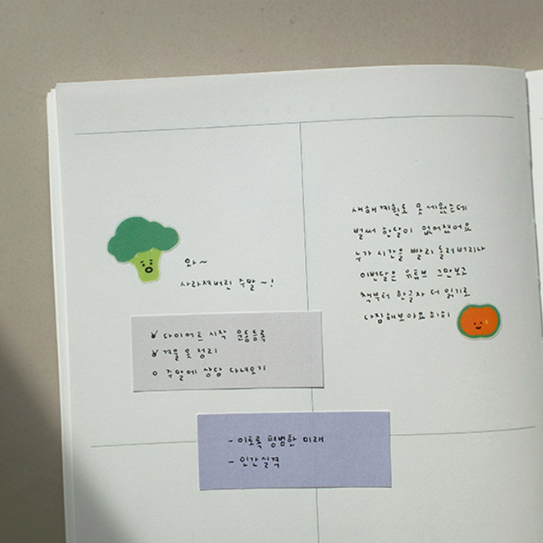 와~
사라져버린 주말~!
새해계획도 못 세웠는데
벌써 한달이 없어졌어요
누가 시간을 빨리 돌려버리나
이번달은 유튜브 그만보고
책부터 한글자 더 읽기로
다짐해보아요 히히
다이어트 시작 운동등록
겨울 옷 정리
o 주말에 상담 다녀오기
- 이토록 평범한 미래
- 인간실격